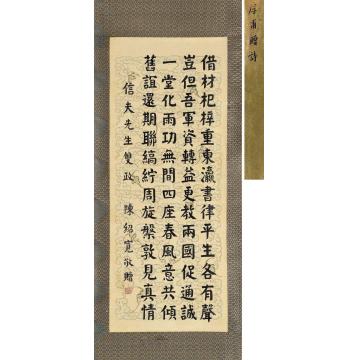 厚甫贈詩
借材杞梓重東瀛書律平生各有聲
豈但吾軍資轉益更教兩國促通誠
一堂化雨功無間四座春風意共傾
舊誼還期聯縞紵周旋槃敦見真情
信夫先生雙政 陳紹寬敬贈